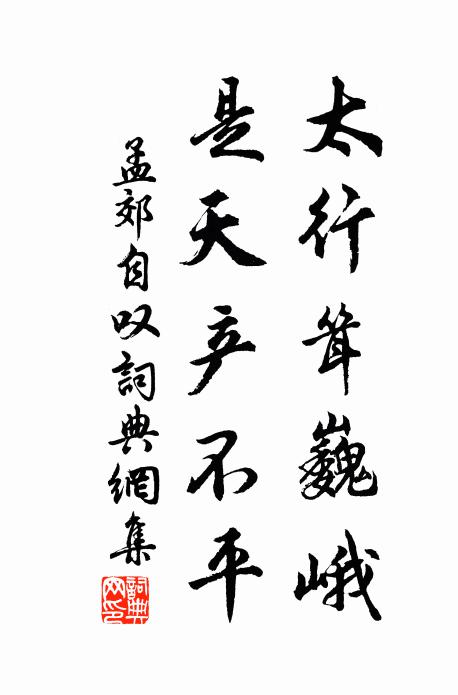 太行耸巍峨
是天产不平
孟郊自叹詞典網集
詞典网印